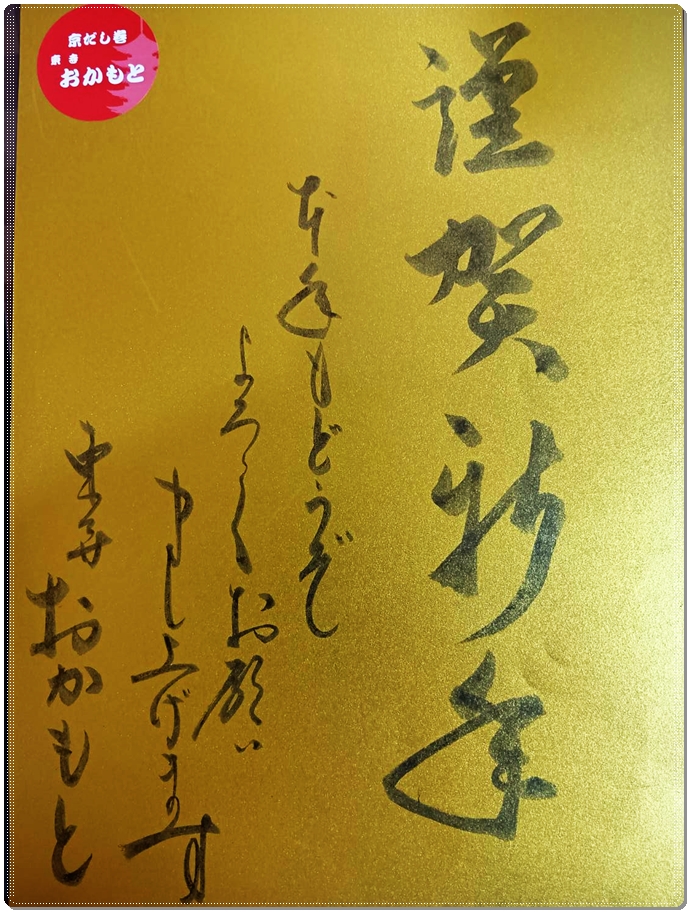 謹賀新年
本年もどうぞ
よろしくお願い
申し上げます
東寺 おかもと
京だし巻
東寺
おかもと